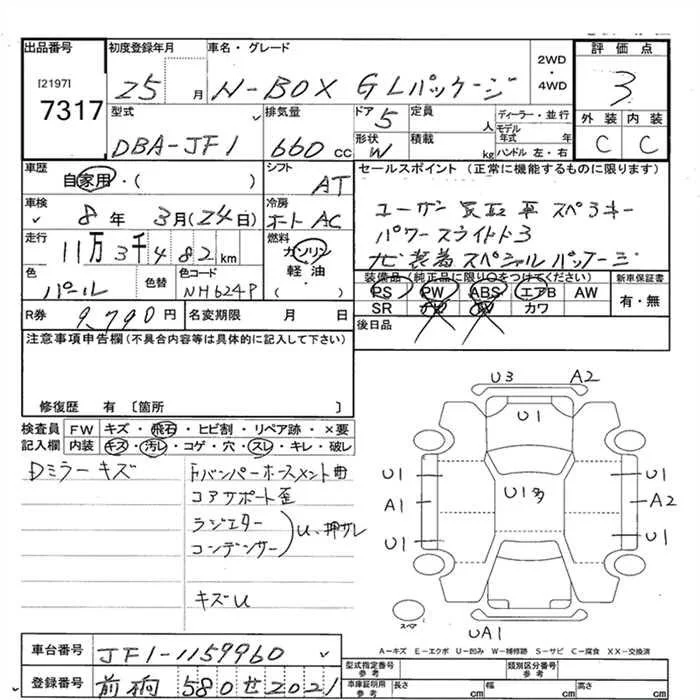 出品番号 初度登録年月 車名・グレード 評価点
[2197]
7317
25 月 N-BOX GLパッケージ 2WD・4WD 3
型式 排気量 ドア 5 定員 人 ディーラー・並行 外装 内装
DBA-JF1 660 cc 形状 W 積載 kg モデル年式 年 ハンドル 左・右 C C
車歴 シフト セールスポイント(正常に機能するものに限ります)
自家用・( ) AT
車検 冷房
8年 3月(24日) オート AC
走行 燃料 パワースライドドア
11万3千482km ガソリン ナビ装着スペシャルパッケージ
色 色替 色コード 軽油・ 装備品(純正品に限り○をつけてください) 新車保証書
パール NH624P ( ) PS PW ABS エアB AW 有・無
SR カワ
R券 9,790円 名変期限 月 日 後日品
注意事項申告欄(不具合内容等は具体的に記入して下さい)
修復歴 有〔箇所 〕
検査員 FW キズ・飛石・ヒビ割・リペア跡・×要
記入欄 内装 キズ・汚レ・コゲ・穴・スレ・キレ・破レ
Dミラーキズ
コアサポート歪
ラジエター
コンデンサー U、押サレ
キズU
U3 A2
U1
U1 U1
A1 A2
U1 U1
スペア
UA1
A-キズ E-エクボ U-凹み W-補修跡 S-サビ C-腐食 XX-交換済
車台番号 JF1-1159960 型式指定番号 参考 類別区分番号 参考
登録番号 前橋 580 せ 2021 車庫証明用 参考 長さ cm 幅 cm 高さ cm